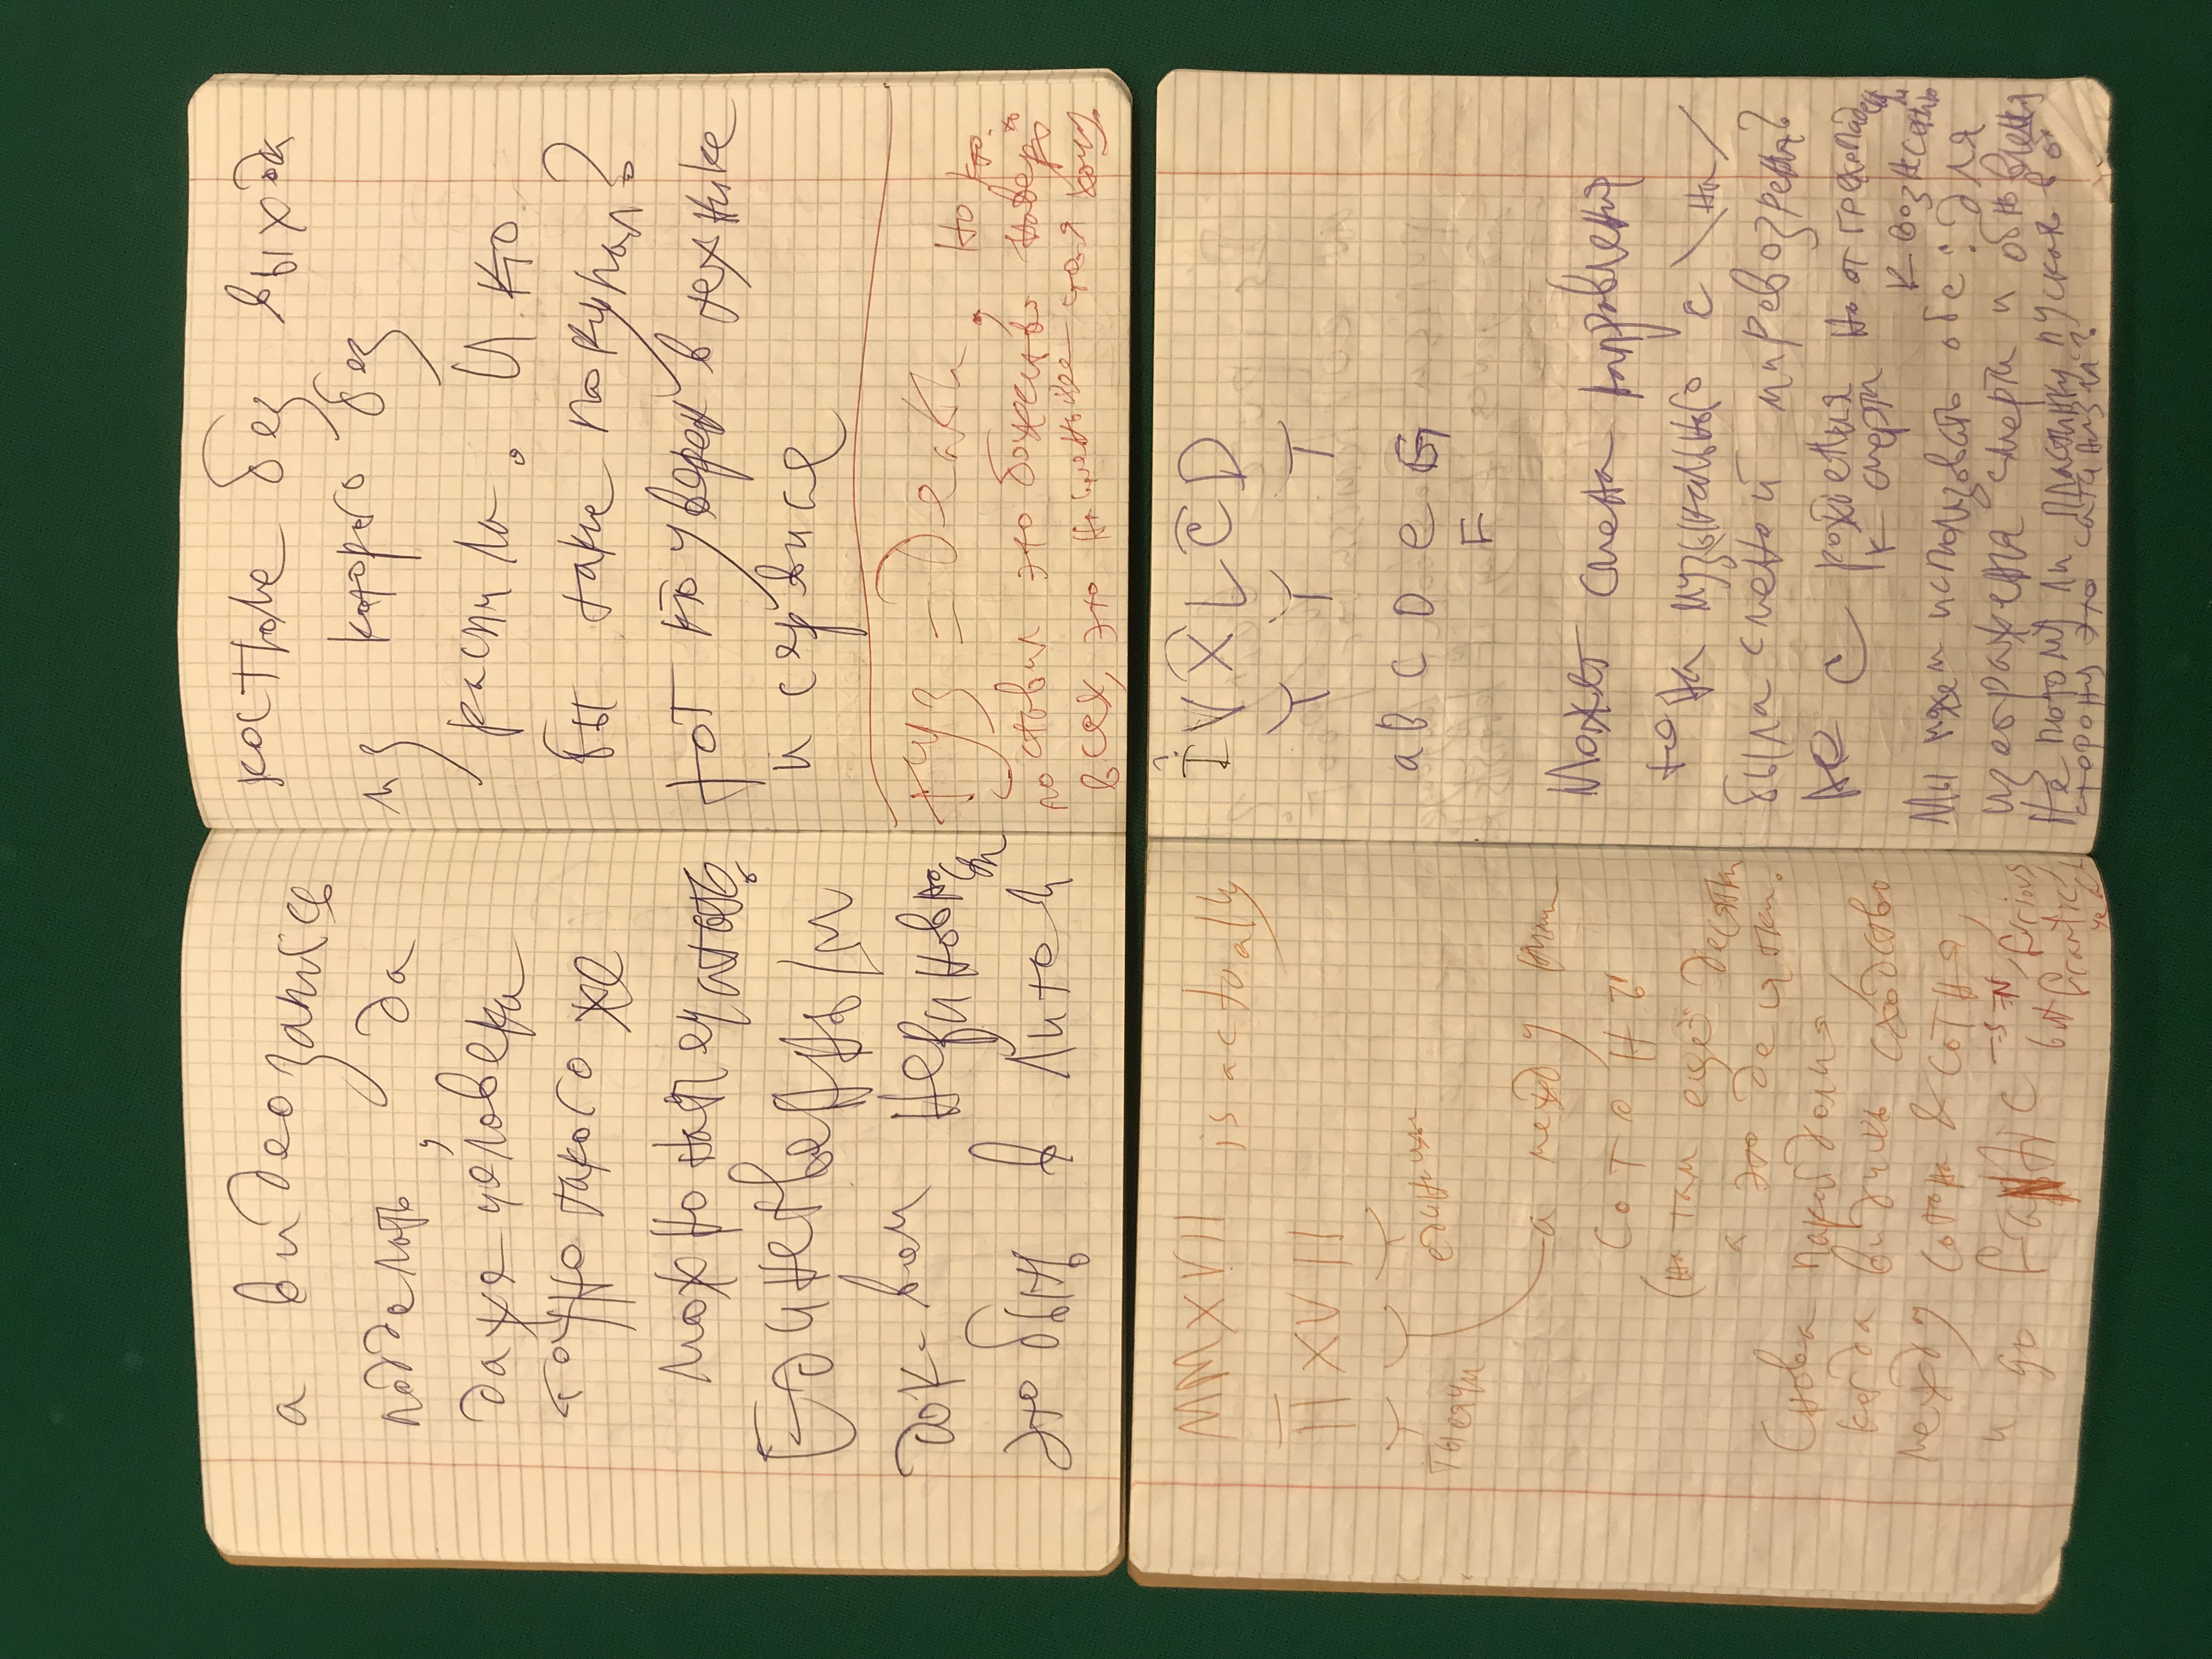 а видеозапись
подделать, да
даже человека
точно такого же
можно напечатать.
Единственным
док-вом невиновности
это быть в литой
костюме без выхода
из которого без
распила. И кто
бы такие покупал?
тот кто уверен в технике
и сервисе
туз = Death, но кто
поставил это божество наверх
всех, это
MMXVII is actually
II XVII
тысячи
единицы
а между ними
сотоны
(но там ещё десятки
а это десятки.
Снова парейдолия
когда видишь сходство
между сотона & сотня,
и go frantic
=S=N
but furious
frantic
yeah
? I V X L C D
Y Y T
a B C D e G
F
Может смена направления
тона музыкального с \ на /
была сменой мировозрения?
Не с рождения
к смерти но от грехопадения
к вознесению
Мы можем использовать обе: для
изображения смерти и обновления
Не потому ли пластинку пускать в об
сторону это сатанизм?